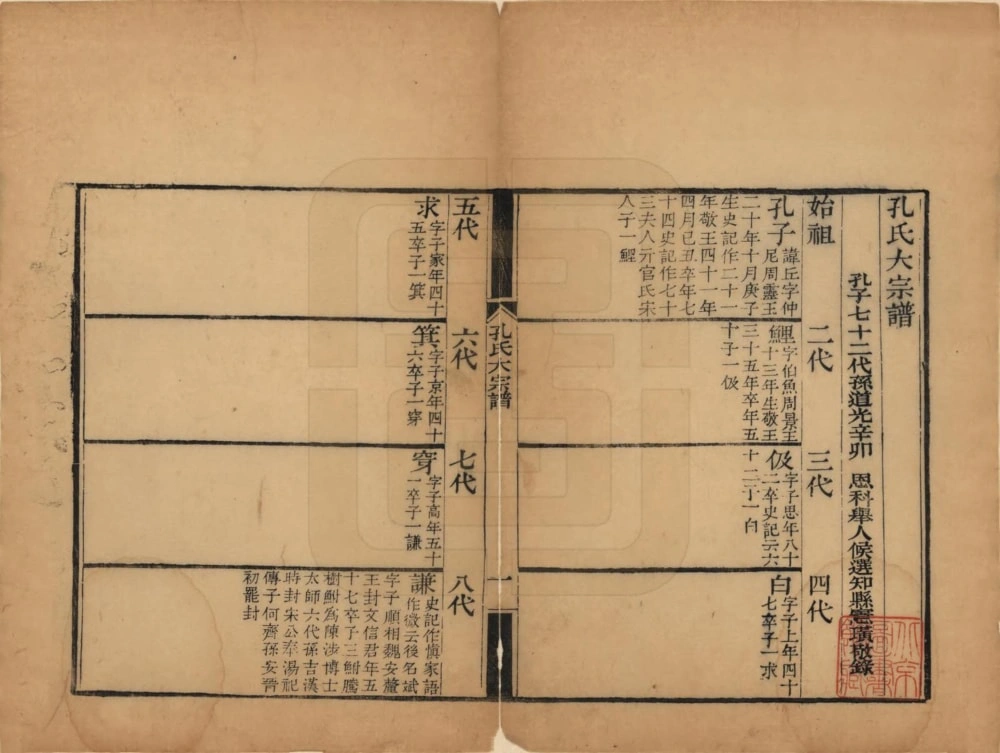 孔氏大宗譜
孔子七十二代孫道光辛卯 恩科舉人候選知縣憲璜敬錄
始祖
孔子諱丘字仲
尼周靈王
二十年十月庚子
生史記作二十一
年敬王四十一年
四月己丑卒年七
十四史記作七十
三夫人亓官氏宋
人子一鯉
二代
鯉字伯魚周景王
十三年生敬王
三十五年卒年五
十子一伋
三代
伋字子思年八十
二卒史記云六
十二子一白
四代
白字子上年四十
七卒子一求
孔氏大宗譜
一
五代
求字子家年四十
五卒子一箕
六代
箕字子京年四十
六卒子一穿
七代
穿字子高年五十
一卒子一謙
八代
謙史記作慎家語
作微云後名斌
字子順相魏安釐
王封文信君年五
十七卒子三鮒騰
樹鮒為陳涉博士
太師六代孫吉漢
時封朱公奉湯祀
傳子何齊孫安晉
初罷封